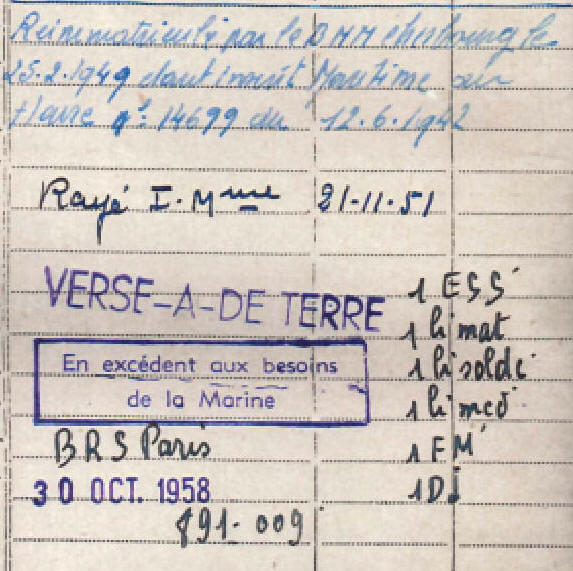 Reimmatriculé par le DMM Cherbourg le
25.2.1949 étant inscrit Maritime au
Havre n°: 14699 du 12.6.1942
Rayé I. Mme 21-11-51
VERSE-A-DE TERRE
En excédent aux besoins
de la Marine
BRS Paris
30 OCT. 1958
891-009
1 ESS
1 li mat
1 li solde
1 li med
1 FM
1 DI